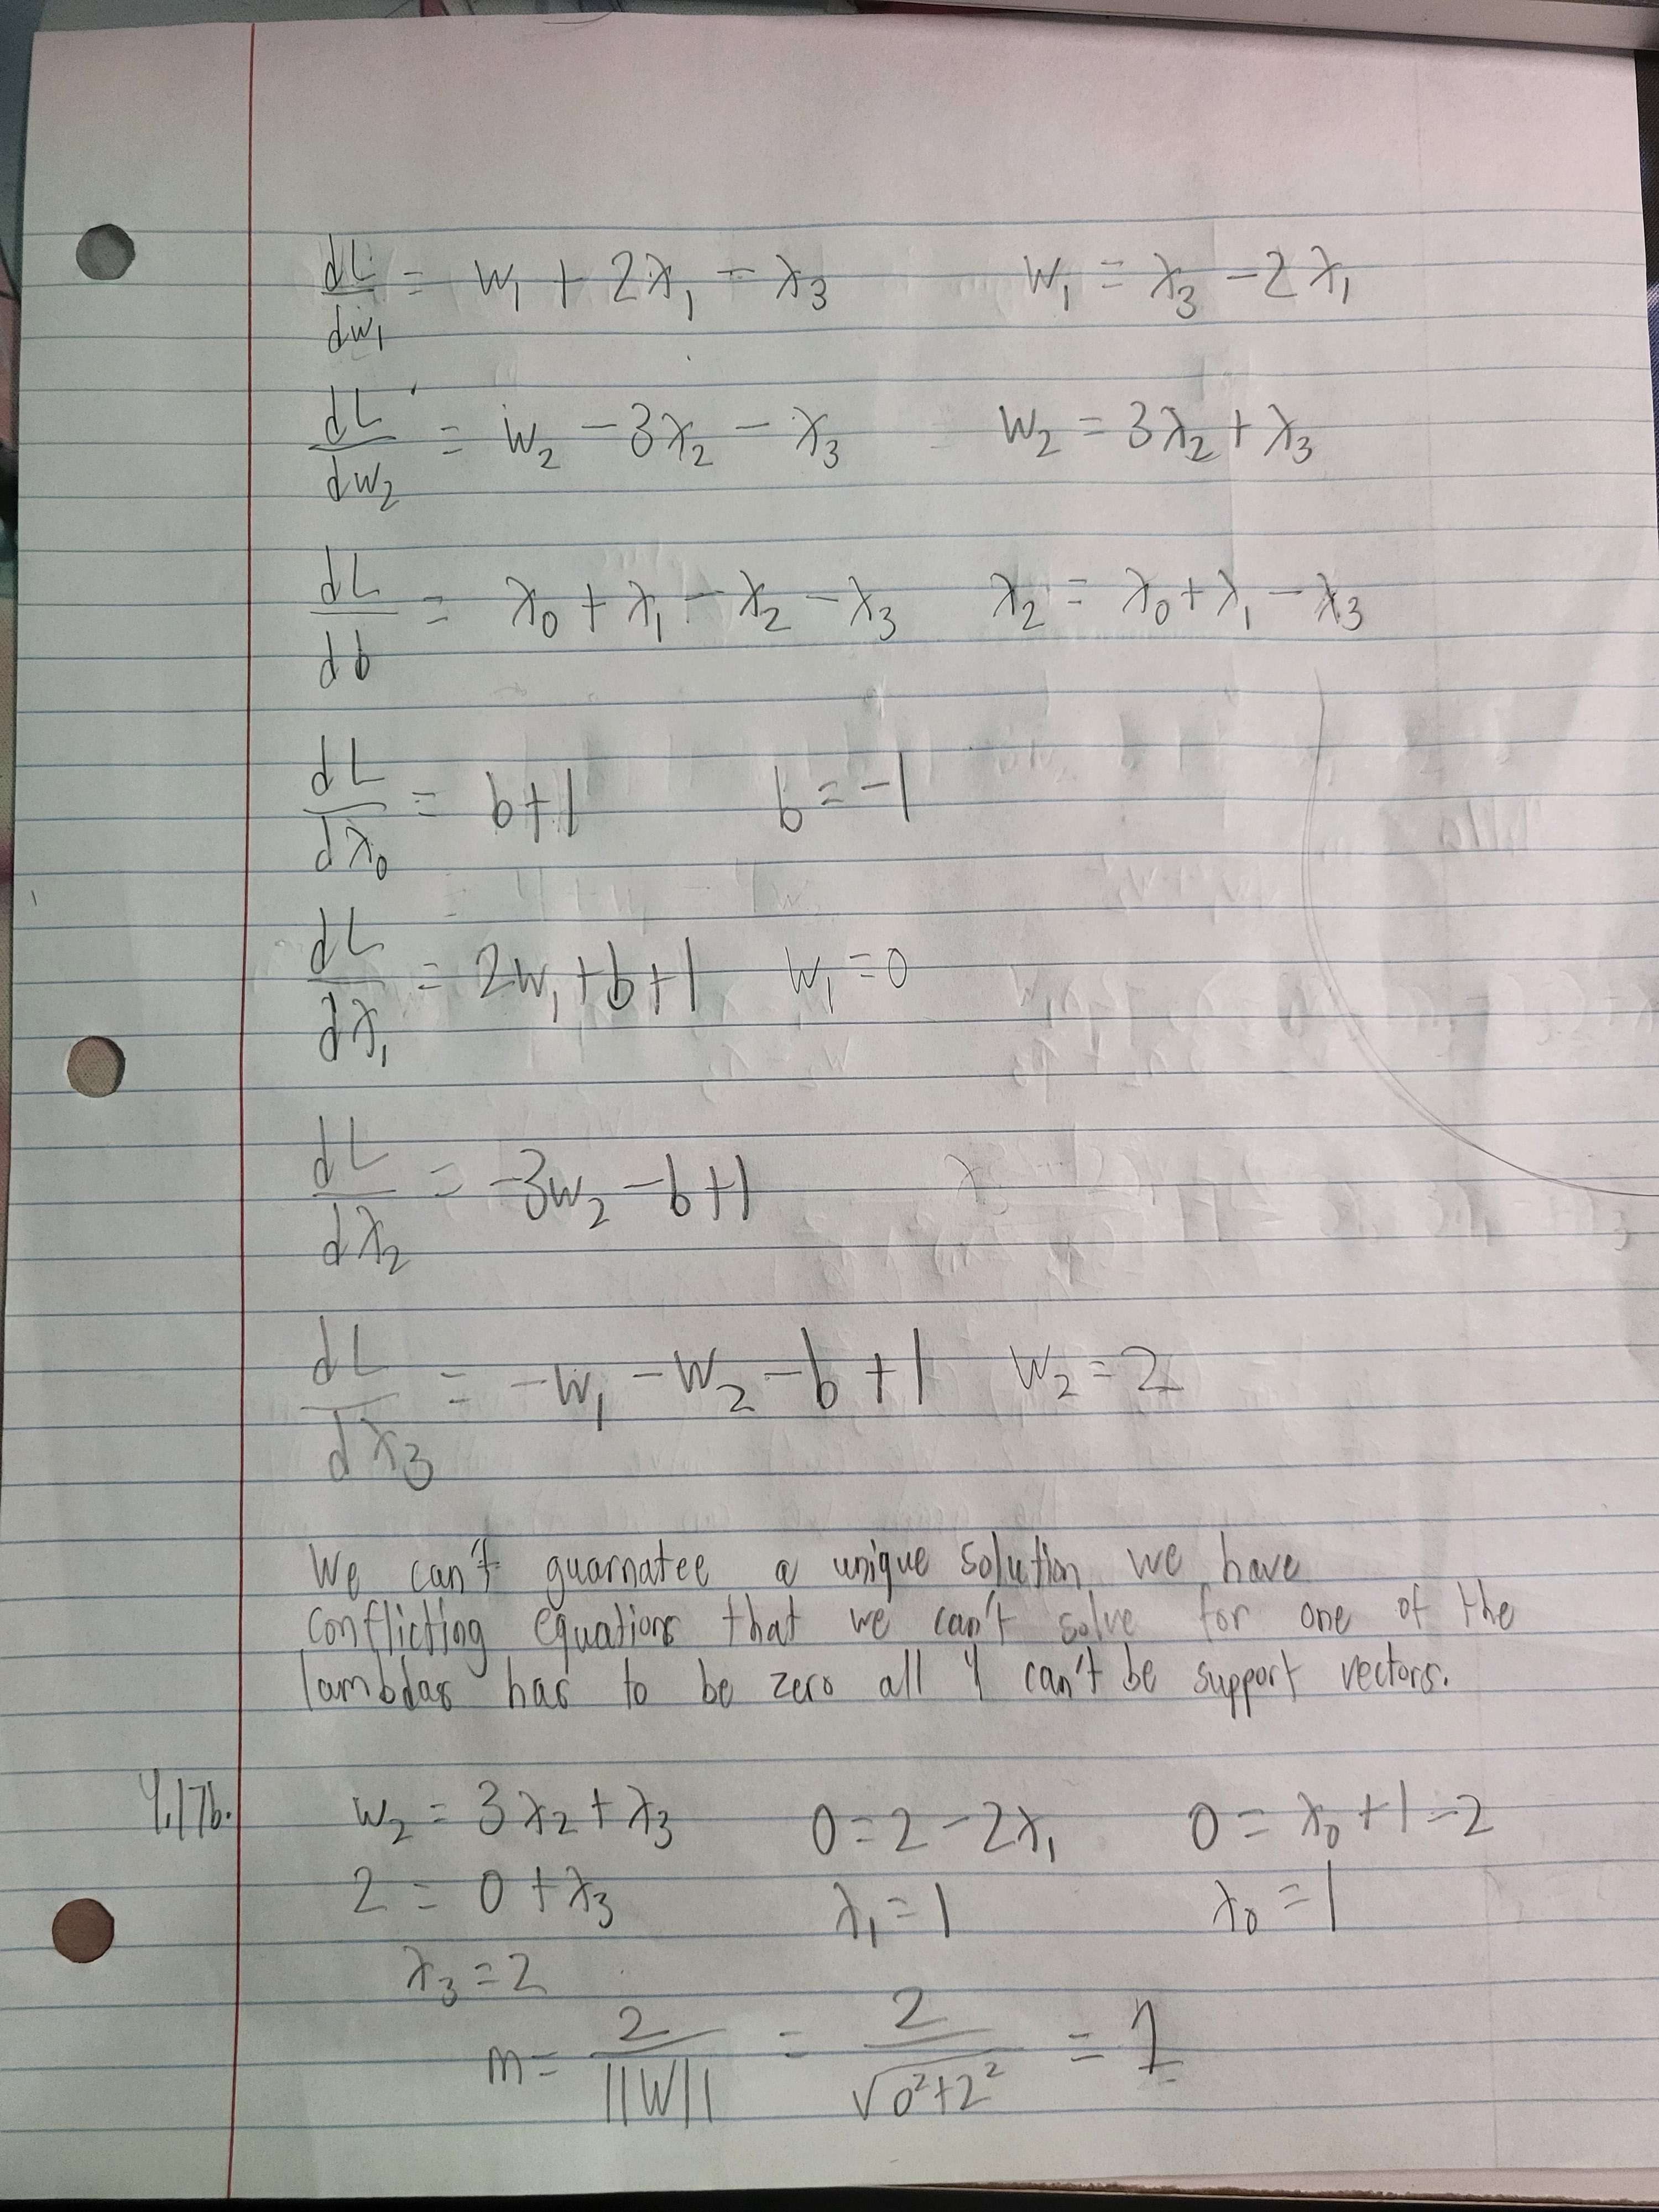 dL/dw₁ = w₁ + 2λ₁ - λ₃    w₁ = λ₃ - 2λ₁
dL/dw₂ = w₂ - 3λ₂ - λ₃    w₂ = 3λ₂ + λ₃
dL/db = λ₀ + λ₁ - λ₂ - λ₃    λ₂ = λ₀ + λ₁ - λ₃
dL/dλ₀ = b+1    b = -1
dL/dλ₁ = 2w₁ + b + 1    w₁ = 0
dL/dλ₂ = -3w₂ - b + 1
dL/dλ₃ = -w₁ - w₂ - b + 1    w₂ = 2
We can't guarnatee a unique solution we have
conflicting equations that we can't solve for one of the
lambdas has to be zero all 4 can't be support vectors.
4.17b. w₂ = 3λ₂ + λ₃    0 = 2 - 2λ₁    0 = λ₀ + 1 - 2
2 = 0 + λ₃    λ₁ = 1    λ₀ = 1
λ₃ = 2
m = 2/||W|| = 2/√(0²+2²) = 1